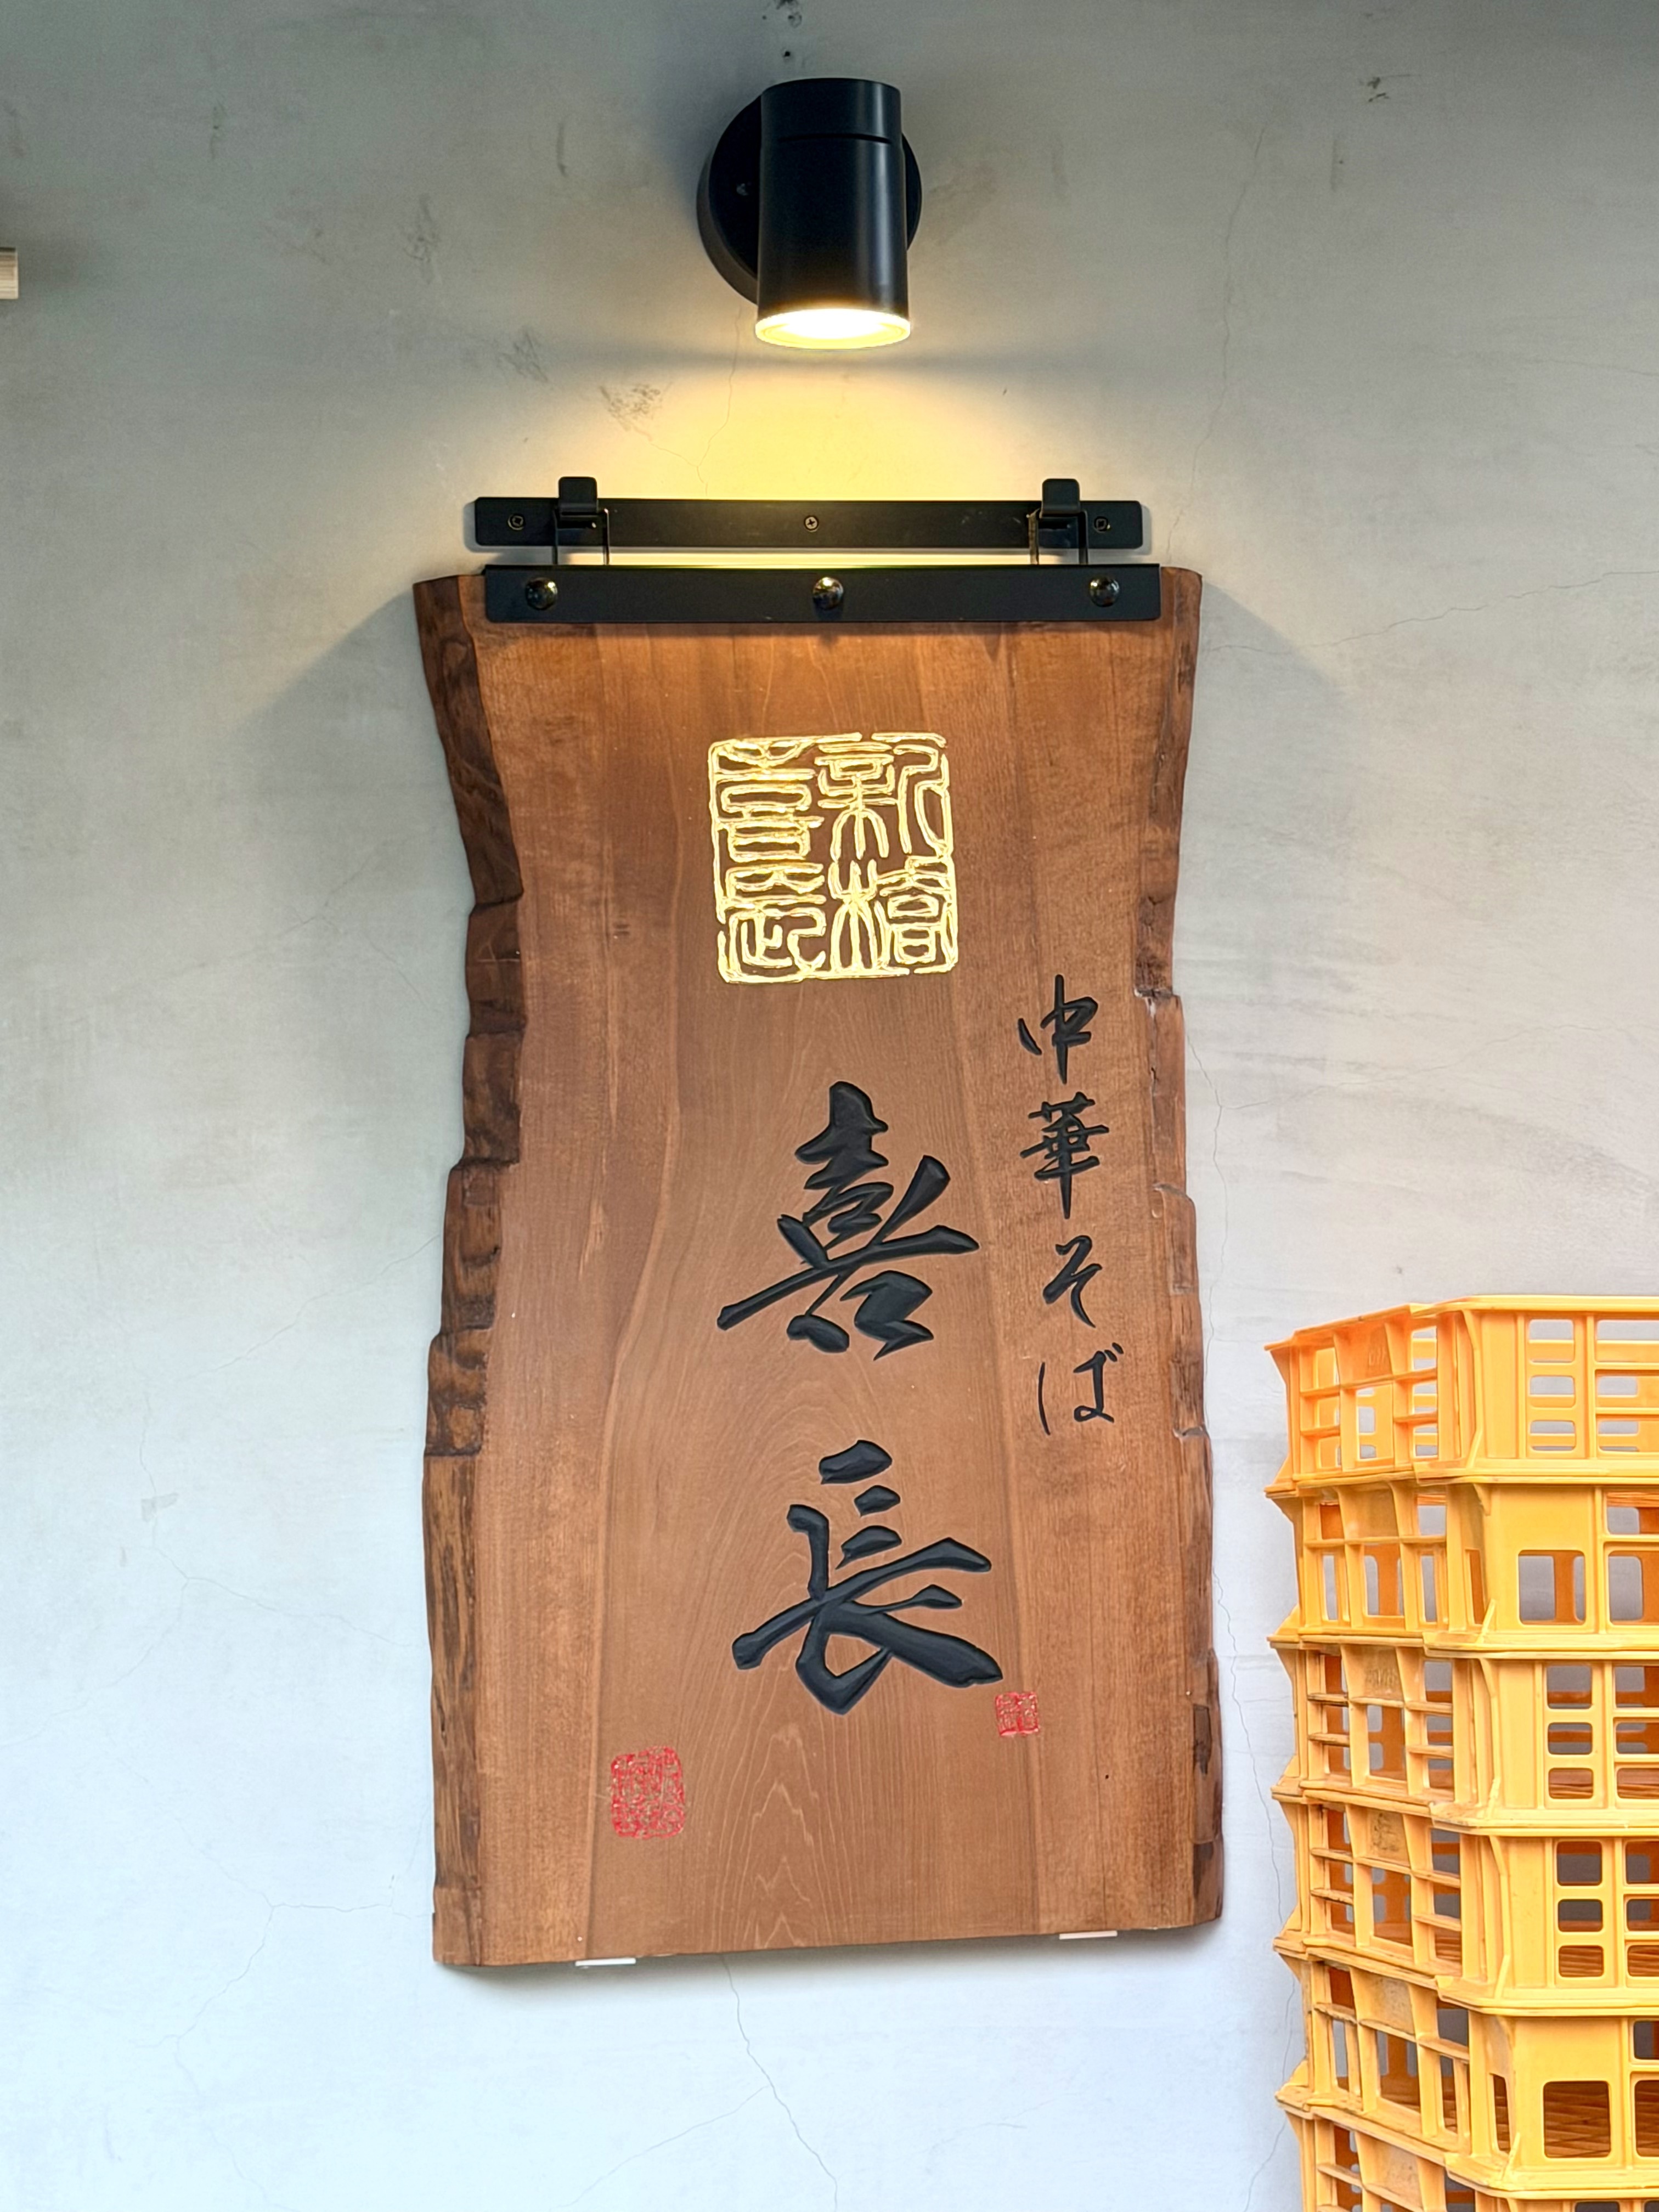 新橋
喜長
中華そば
喜長